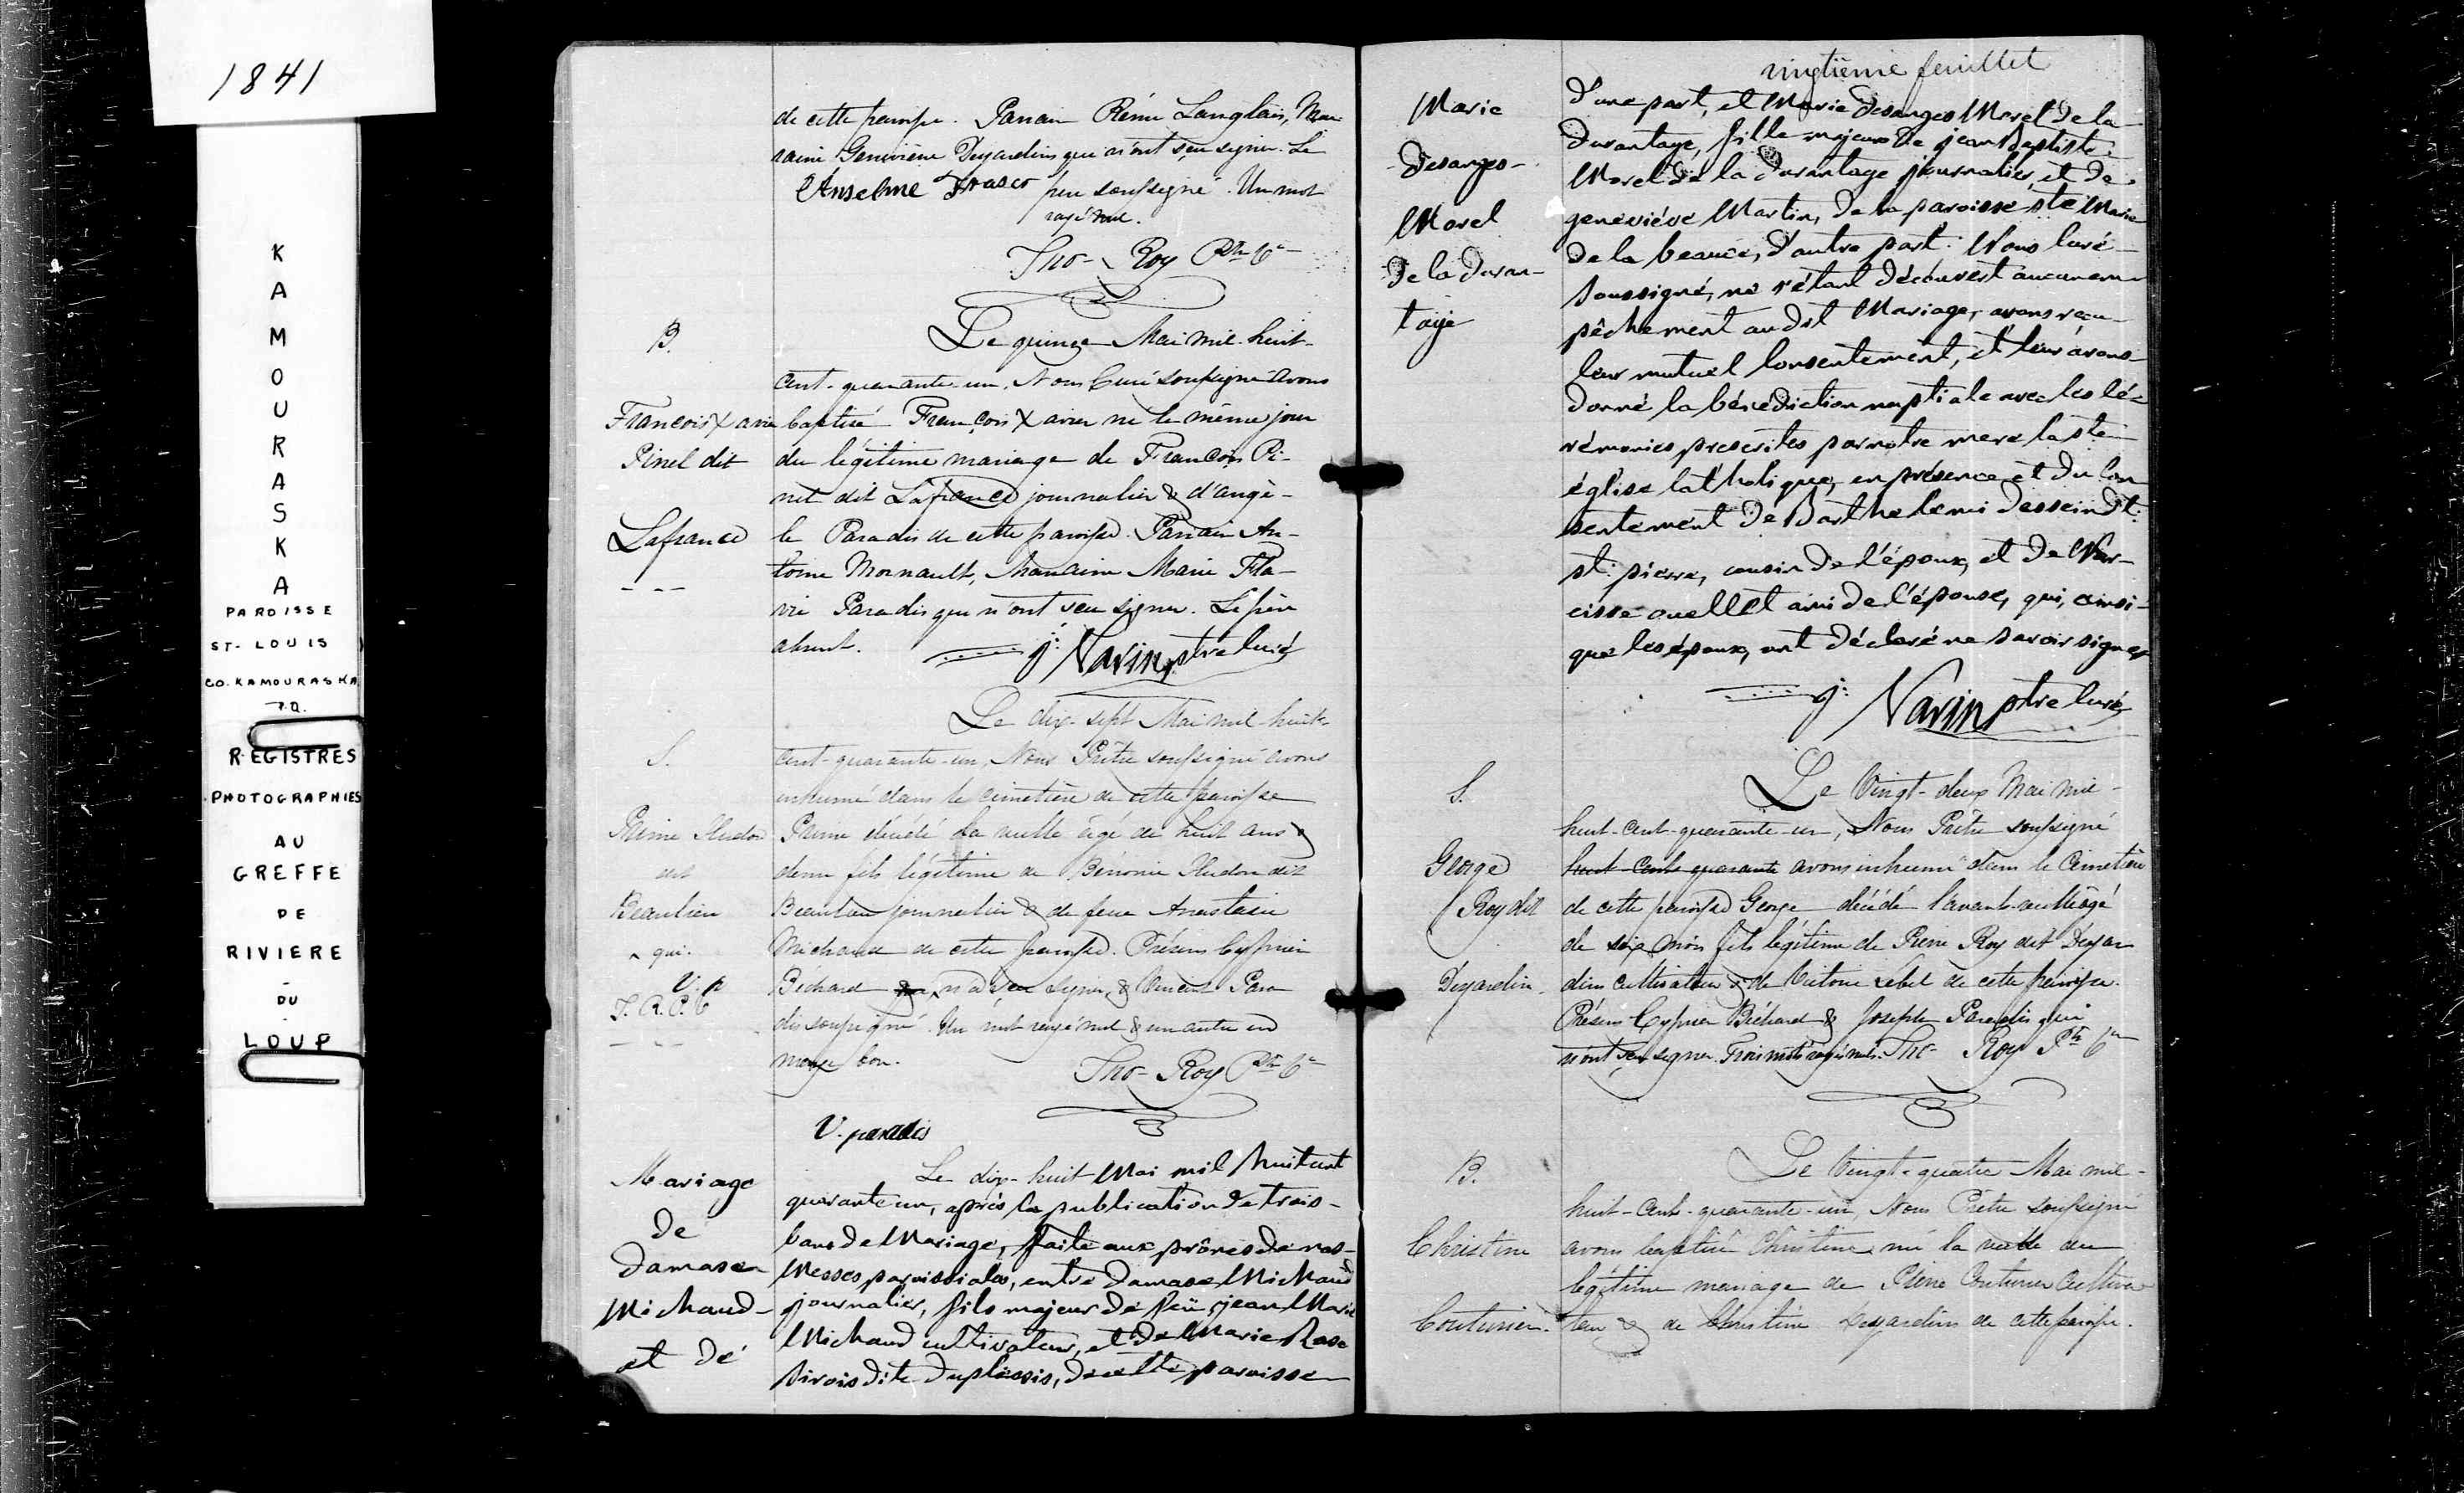 1841
K
A
M
O
U
R
A
S
K
A
PAROISSE
ST-LOUIS
CO. KAMOURASKA
P.Q.
REGISTRES
PHOTOGRAPHIES
AU
GREFFE
DE
RIVIERE
-
DU
-
LOUP
de cette paroisse. Parrain Rémi Langlais, Mar
raine Geneviève Dejardins qui n'ont sçu signer. Le
Anselme père soussigné. Un mot
rayé nul.
Tho- Roy Ptr
B.
Le quinze Mai mil-huit-
cent-quarante-un, Nous Curé soussigné avons
François Xavier
baptisé François Xavier né le même jour
Pinel dit
du légitime mariage de François Pi-
nel dit Lafrance journalier & d'angè-
Lafrance
le Paradis de cette paroisse. Parrain An-
toine Mornault, Marraine Marie Fla-
vie Paradis qui n'ont sçu signer. Le père
absent.
j: Varin ptre Curé
Le dix-sept Mai mil-huit-
S.
cent-quarante-un, Nous Prêtre soussigné avons
inhumé dans le cimetière de cette paroisse
Prime Hudon
Prime décédé la veille âgé de huit ans &
dit
demi fils légitime de Bénonie Hudon dit
Beaulieu
Beaulieu journalier & de feue Anastasie
^ qui.
Michaud de cette paroisse. Présens Cyprien
V. p
Béchard qui ^ n'a sçu signer, & Vincent Para
T. R. P.
dis soussigné. Un mot rayé nul & un autre en
marge bon.
Tho- Roy Ptr
V. paradis
Mariage
Le dix-huit Mai mil huit cent
quarante un, après la publication de trois-
de
bans de Mariage, faite aux prônes de nos-
Damase
Messes paroissiales, entre Damase Michaud
Michaud-
journalier, fils majeur de feu jean Marie
et de
Michaud cultivateur, et de Marie Rose
Sirois dite Duplessis, de cette paroisse
vingtième feuillet
Marie
d'une part, et Marie Desanges Morel de la
Durantaye, fille majeure de jean Baptiste
Desanges-
Morel de la Durantaye journalier, et de
Morel
geneviéve Martin, de la paroisse ste Marie
de la Duran-
de la beauce, d'autre part: Nous Curé
soussigné, ne s'étant découvert aucun em-
taye
pêchement audit Mariage, avons reçu
leur mutuel Consentement, et leur avons-
donné la bénédiction nuptiale avec les cé-
rémonies prescrites par notre mere la ste
église Catholique, en présence et du Con
sentement de Barthelemi Dessein dt:
st: pierre, cousin de l'époux, et de Nar-
cisse ouellet ami de l'épouse, qui, ainsi-
que les époux, ont déclaré ne savoir signer
j: Varin ptre Curé
Le Vingt-deux Mai mil-
S.
huit-cent-quarante-un, Nous Prêtre soussigné
George
huit-cent-quarante avons inhumé dans le Cimetière
Roy dit
de cette paroisse George décédé l'avant-veille âgé
de six mois fils légitime de Pierre Roy dit Dejar
Dejardin.
dins cultivateur & de Victoire Lebel de cette paroisse.
Présens Cyprien Béchard & Joseph Paradis qui
n'ont sçu signer. Trois mots rayés nuls. Tho- Roy Ptr
B.
Le Vingt-quatre Mai mil-
huit-cent-quarante-un, Nous Prêtre soussigné
Christine
avons baptisé Christine née la veille du
légitime mariage de Pierre Couturier cultiva-
Couturier.
teur & de Christine Dejardins de cette paroisse.